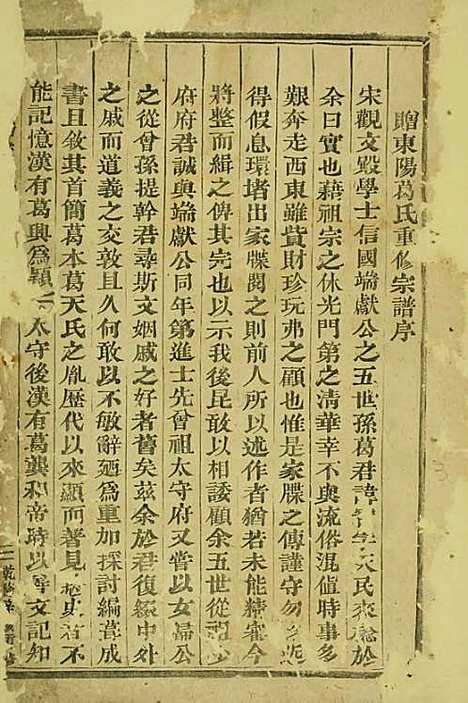 贈東陽葛氏重修宗譜序
宋觀文殿學士信國端獻公之五世孫葛君諱天民來謁於
余曰實也藉祖宗之休光門第之清華幸不與流俗混値時事多
艱奔走西東雖貲財珍玩弗之顧也惟是家牒之傳謹守勿
得假息環堵出家牒閱之則前人所以述作者猶若未能精審今
將整而緝之俾其完也以示我後昆敢以相諉顧余五世從
府府君誠與端獻公同年第進士先曾祖太守府又嘗以女歸公
之從曾孫提幹君尋斯文姻戚之好者舊矣茲余於君復緦中外
之戚而道義之交敦且久何敢以不敏辭廼爲重加採討編葺成
書且敘其首簡葛本葛天氏之胤歷代以來顯而著見若不
能記憶漢有葛興爲潁太守後漢有葛龔和帝時以文記知